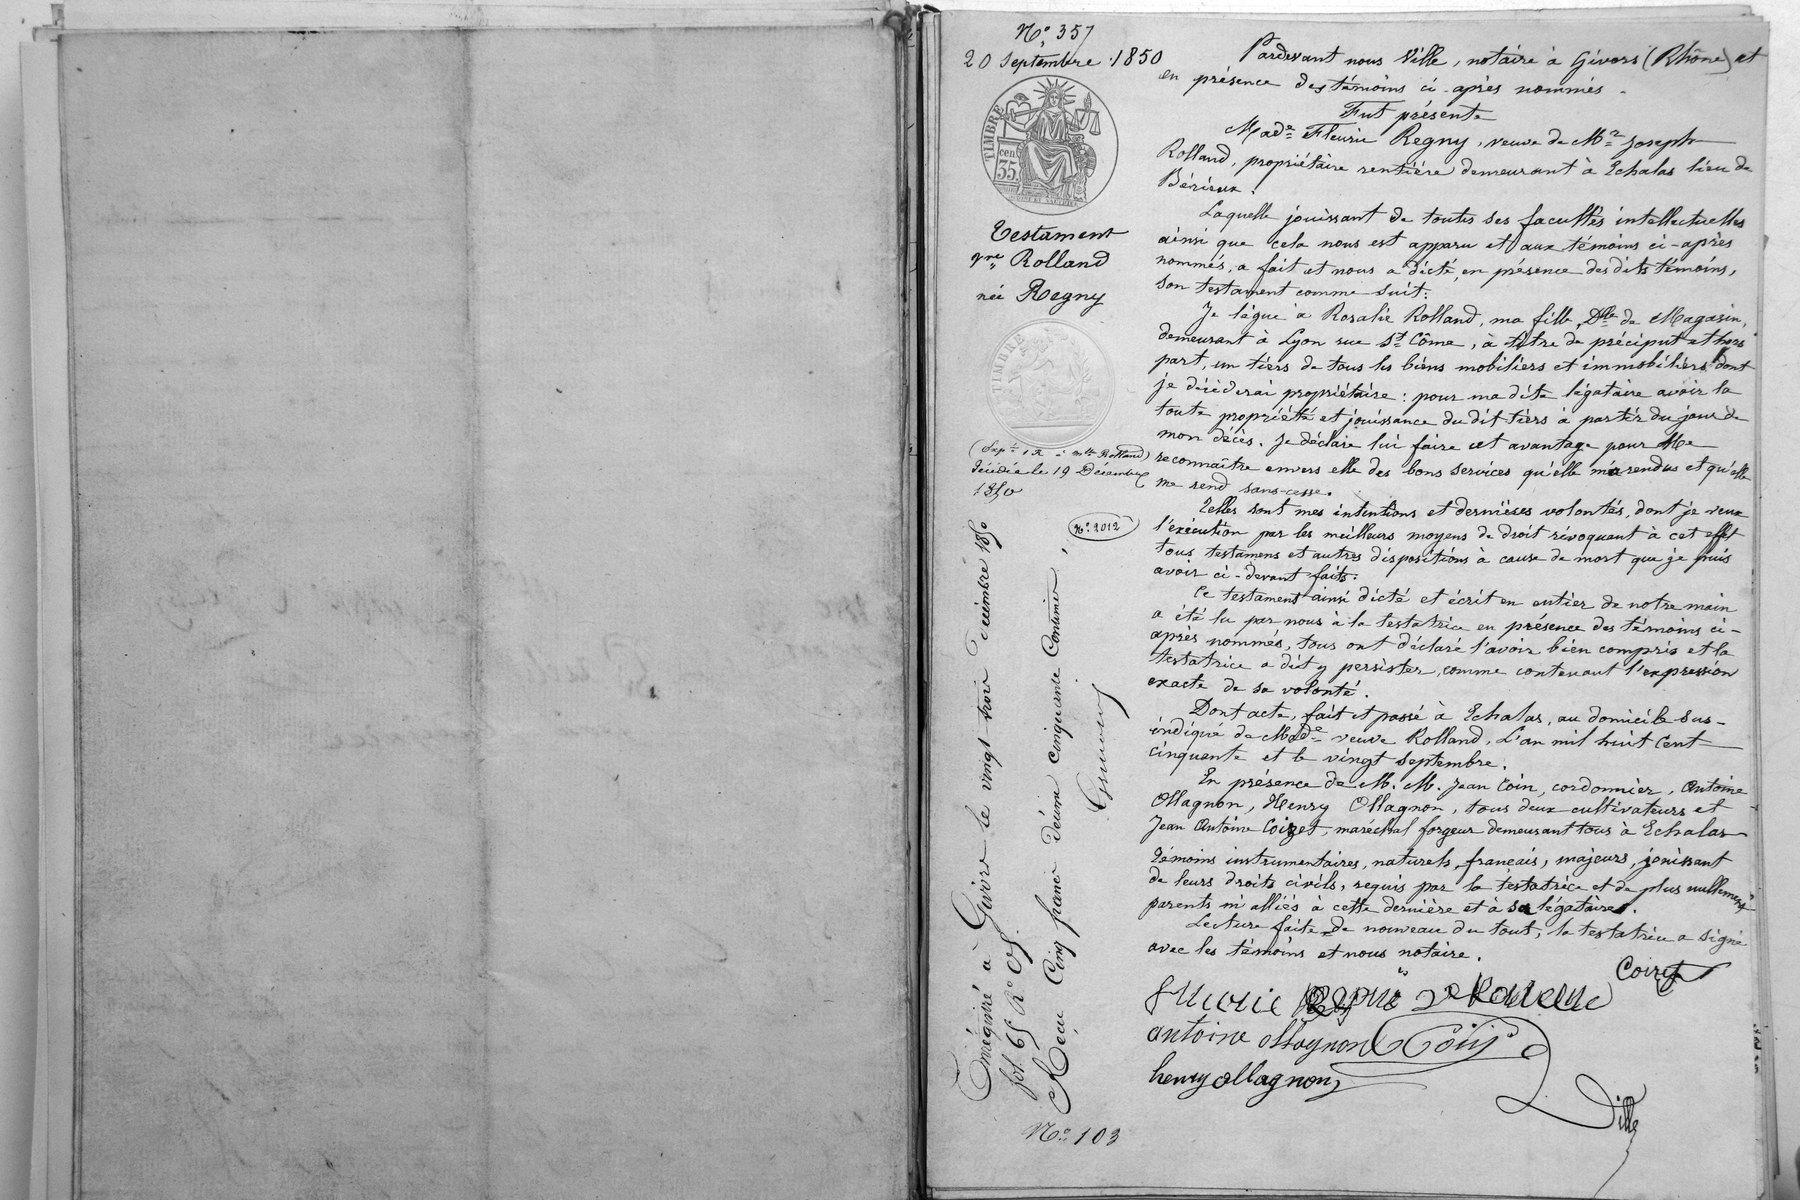 N° 357
20 Septembre 1850
TIMBRE
cen
35
Testament
vve Rolland
née Regny
TIMBRE
décédée le 19 Décembre
1850
N° 2012
Pardevant nous Ville, notaire à Givors (Rhône) et
en présence des témoins ci-après nommés.
Fut présente
Made Fleurie Regny, veuve de Mr Joseph
Rolland, propriétaire rentière demeurant à Echalas lieu de
Bérieux.
Laquelle jouissant de toutes ses facultés intellectuelles
ainsi que cela nous est apparu et aux témoins ci-après
nommés, a fait et nous a dicté, en présence des dits témoins,
son testament comme suit:
Je lègue à Rosalie Rolland, ma fille, Dlle de Magasin,
demeurant à Lyon rue St Côme, à titre de préciput et hors
part, un tiers de tous les biens mobiliers et immobiliers dont
je décèderai propriétaire: pour ma dite légataire avoir la
toute propriété et jouissance du dit tiers à partir du jour de
mon décès. Je déclare lui faire cet avantage pour me
reconnaître envers elle des bons services qu'elle m'a rendus et qu'elle
me rend sans-cesse.
Telles sont mes intentions et dernières volontés, dont je veux
l'exécution par les meilleurs moyens de droit révoquant à cet effet
tous testamens et autres dispositions à cause de mort que je puis
avoir ci-devant faits.
Ce testament ainsi dicté et écrit en entier de notre main
a été lu par nous à la testatrice en présence des témoins ci-
après nommés, tous ont déclaré l'avoir bien compris et la
testatrice a dit y persister, comme contenant l'expression
exacte de sa volonté.
Dont acte, fait et passé à Echalas, au domicile sus-
indiqué de Made veuve Rolland, L'an mil huit cent
cinquante et le vingt septembre.
En présence de M. M. Jean Coin, cordonnier, Antoine
Ollagnon, Henry Ollagnon, tous deux cultivateurs et
Jean Antoine Coizet, maréchal forgeur demeurant tous à Echalas
témoins instrumentaires, naturels, français, majeurs, jouissant
de leurs droits civils, requis par la testatrice et de plus nullement
parents ni alliés à cette dernière et à sa légataire.
Lecture faite de nouveau du tout, la testatrice a signé
avec les témoins et nous notaire.
antoine ollagnon
henry ollagnon
Ville
Enregistré à Givors le vingt-trois Décembre 1850
fol. 65 R° C 5.
Reçu Cinq francs décime cinquante Centimes
N° 103